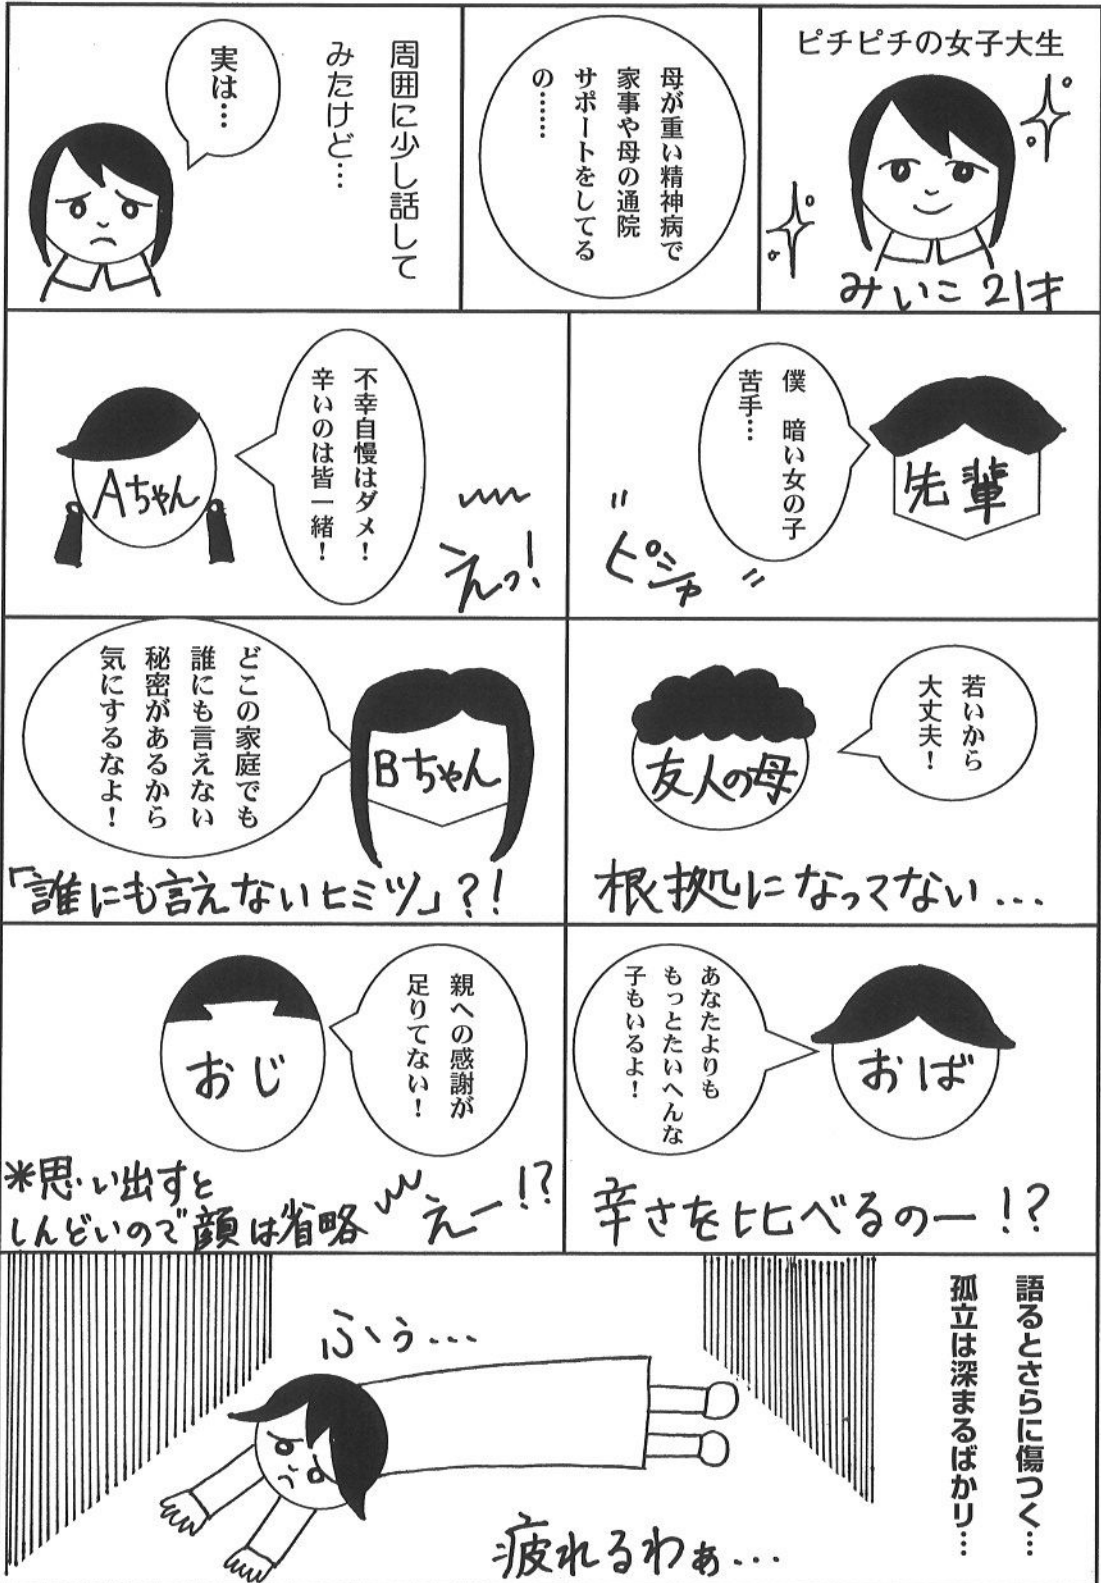 ピチピチの女子大生
みいこ 21才
母が重い精神病で
家事や母の通院
サポートをしてる
の……
周囲に少し話して
みたけど…
実は…
先輩
僕 暗い女の子
苦手…
ピシャ
不幸自慢はダメ！
辛いのは皆一緒！
Aちゃん
えっ！
若いから
大丈夫！
友人の母
根拠になってない…
Bちゃん
どこの家庭でも
誰にも言えない
秘密があるから
気にするなよ！
「誰にも言えないヒミツ」？！
おば
あなたよりも
もっとたいへんな
子もいるよ！
辛さを比べるのー！？
親への感謝が
足りてない！
おじ
えー！？
※思い出すと
しんどいので顔は省略
語るとさらに傷つく…
孤立は深まるばかり…
ふぅ…
疲れるわぁ…